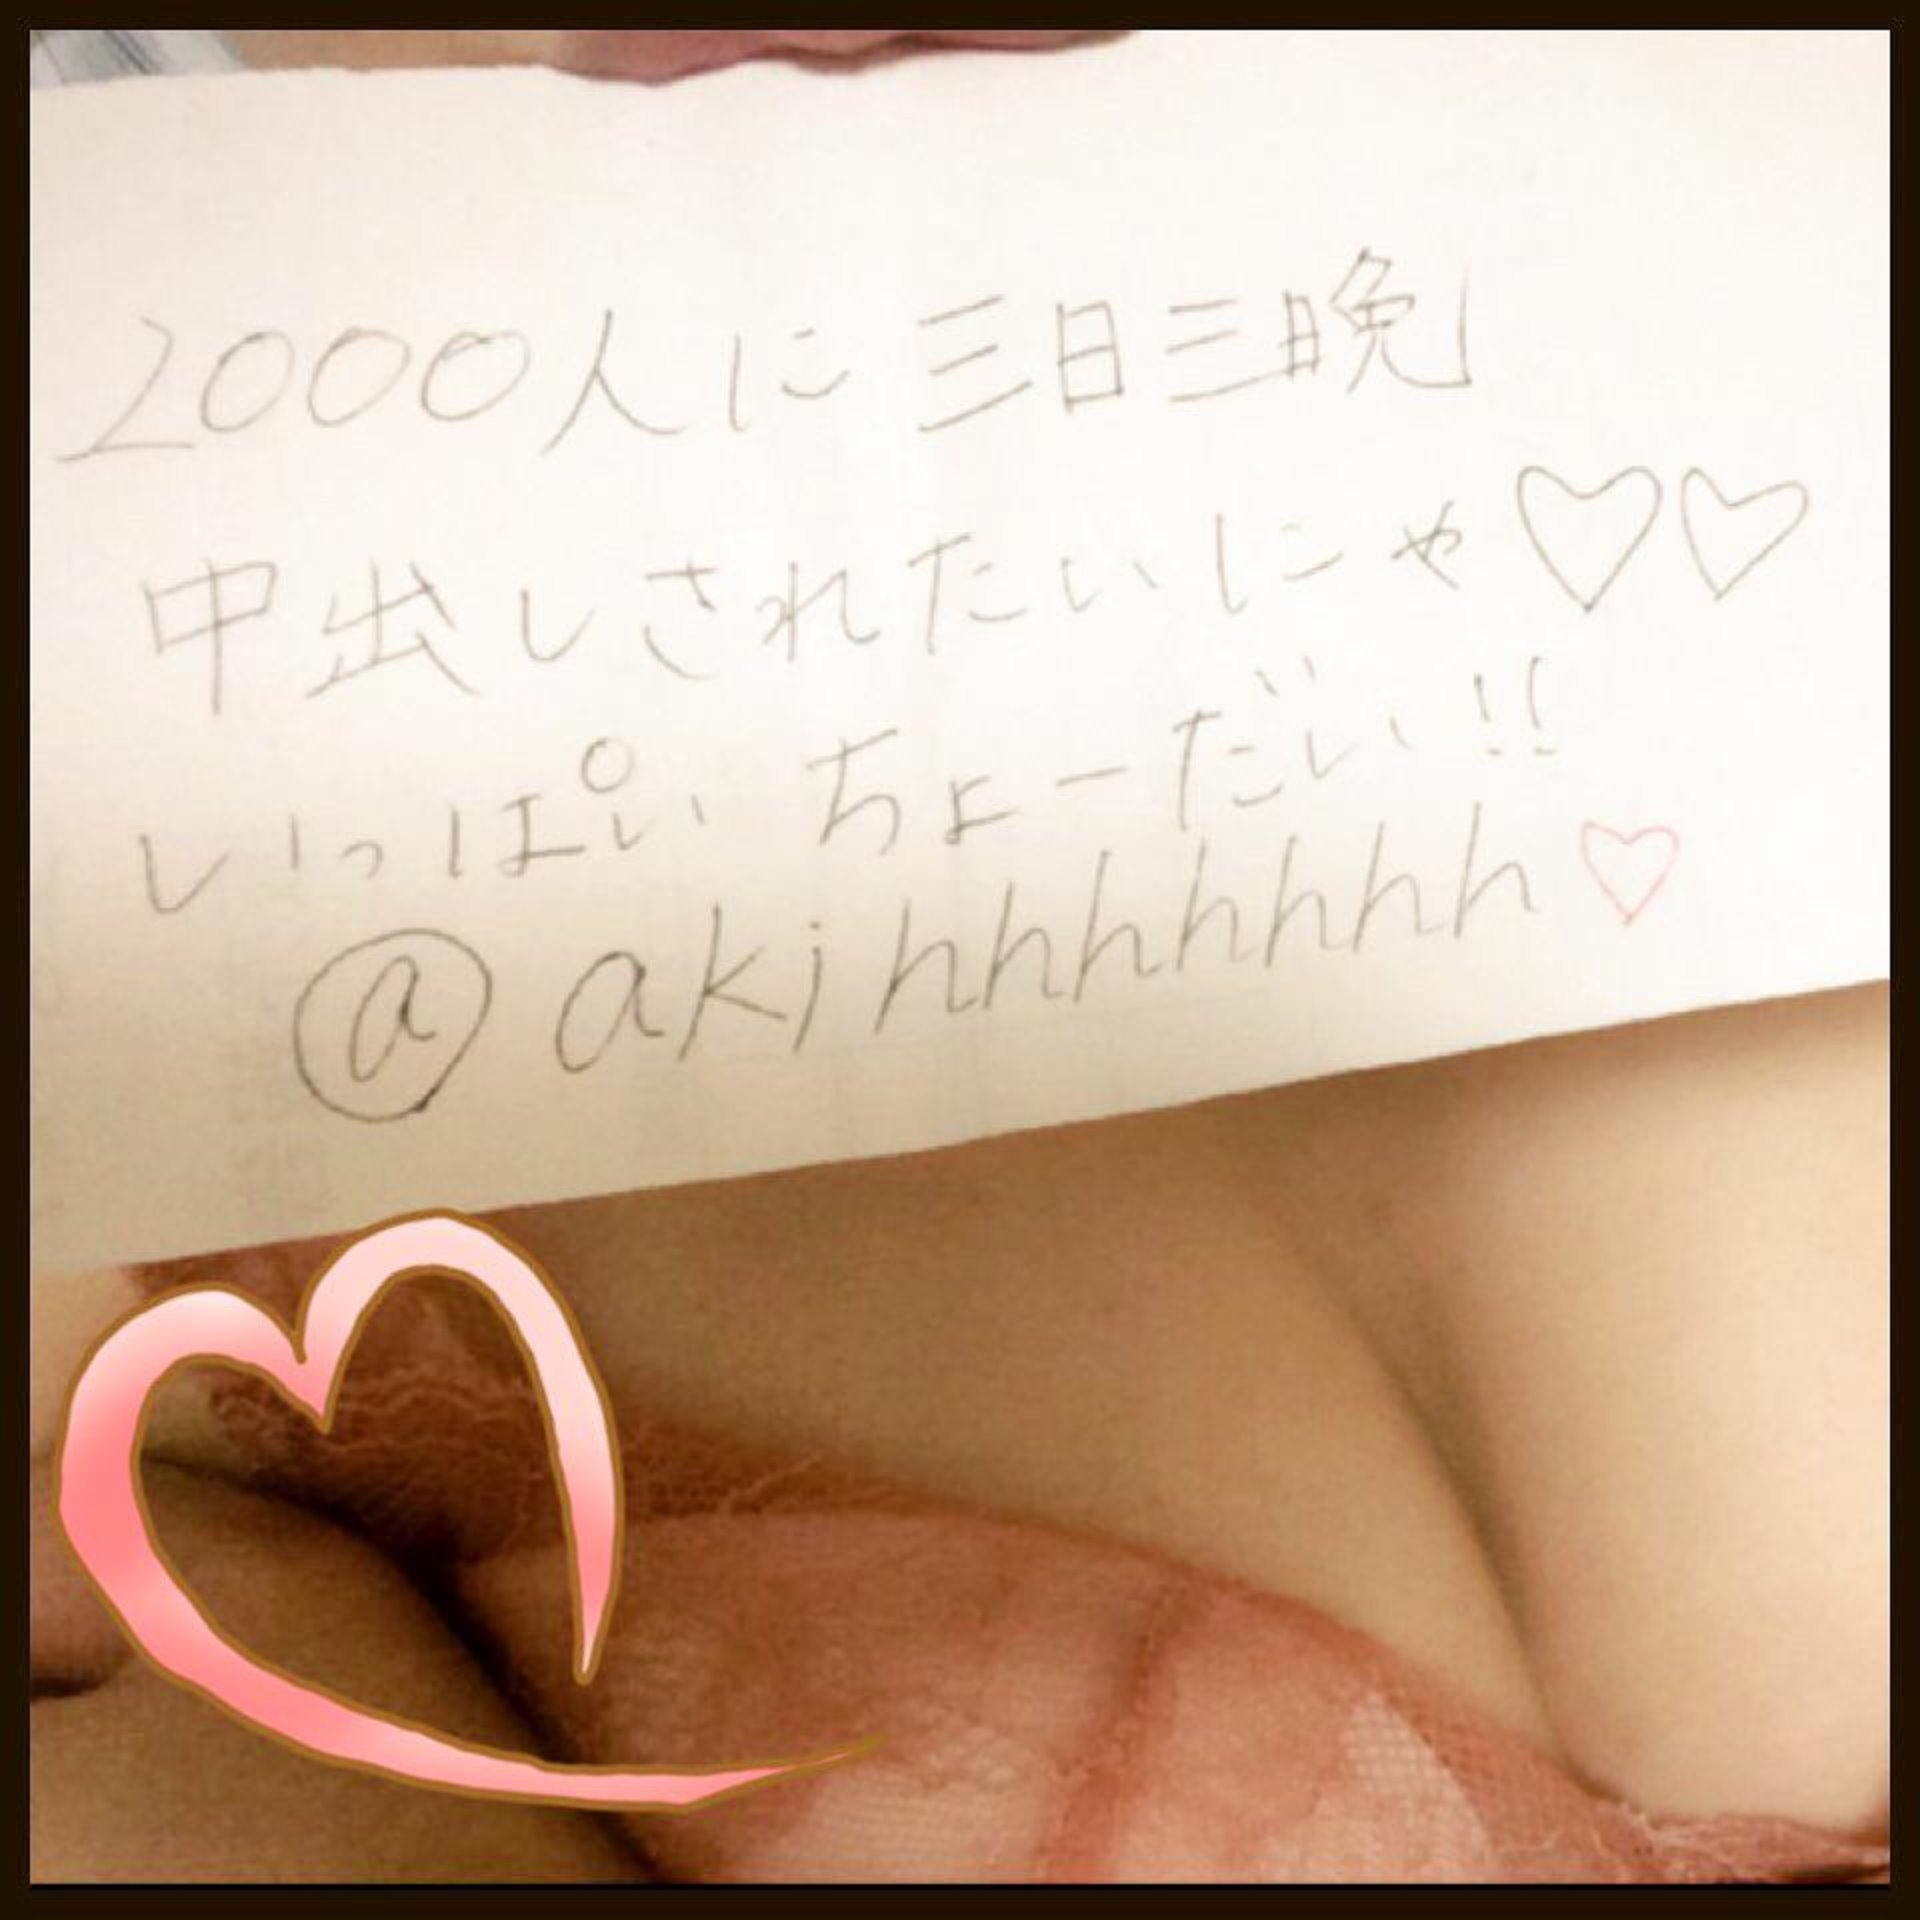 2000人に三日三晩
中出しされたいにゃ♡♡
いっぱいちょーだい!!
@akihhhhhhh♡